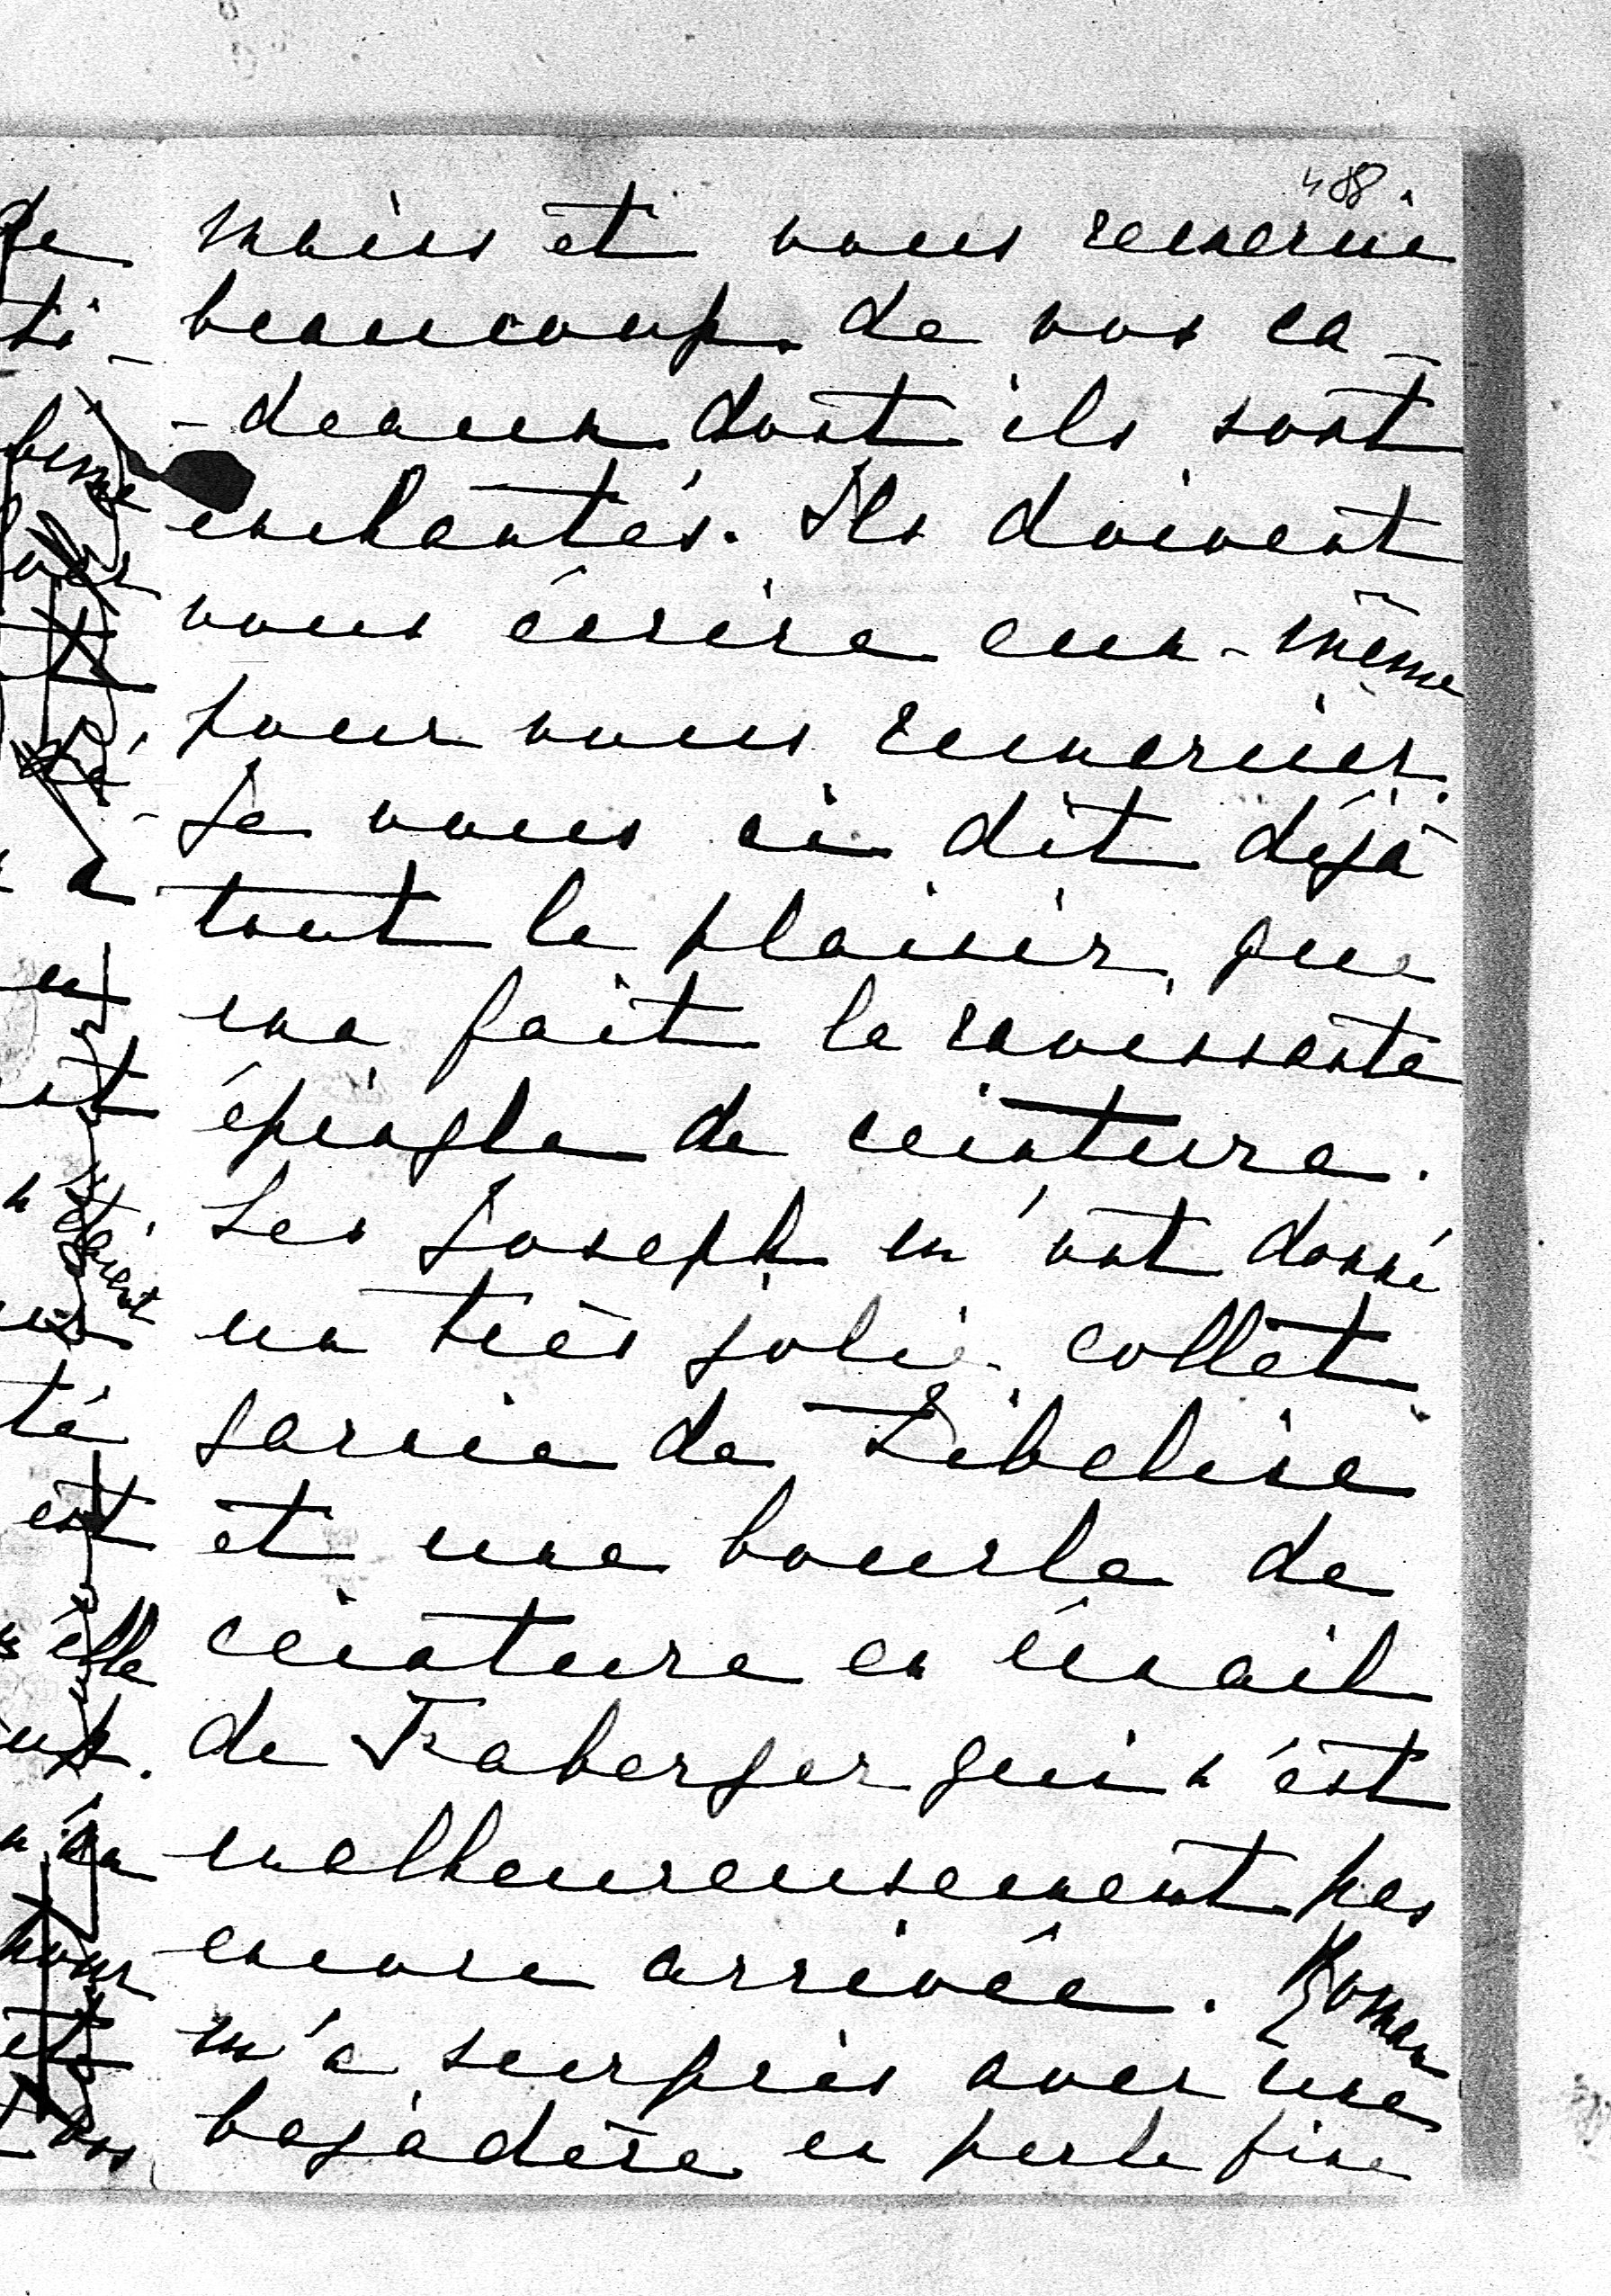 488
mains et vous remercie
beaucoup de vos ca-
-deaux dont ils sont
enchantés. Ils doivent
vous écrire eux-même
pour vous remercier.
Je vous ai dit déjà
tout le plaisir que
ma fait la ravissante
épingle de ceinture.
Les Joseph m'ont donné
un très jolie collet
garnie de Zibeline
et une boucle de
ceinture en émail
de Faberger qui n'est
malheureusement pas
encore arrivée. Roman
m'a surpris avec une
bajadère en perle fine